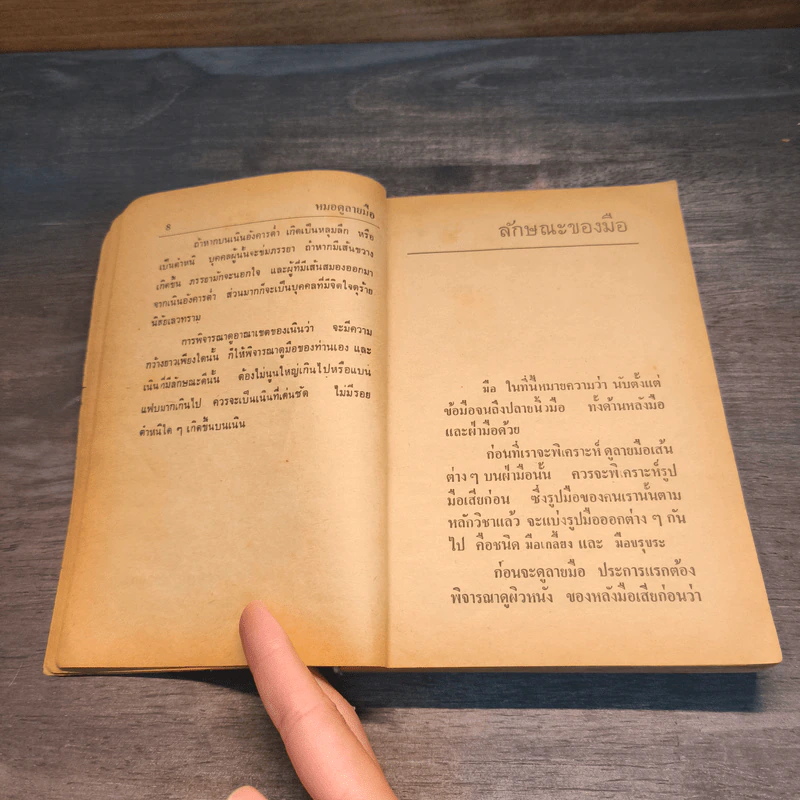 8
หมอดูลายมือ
ถ้าหากบนเนินอังคารต่ำ เกิดเป็นหลุมลึก หรือ
เป็นตำหนิ บุคคลผู้นั้นจะข่มภรรยา ถ้าหากมีเส้นขวาง
เกิดขึ้น ภรรยามักจะนอกใจ และผู้ที่มีเส้นสมองออกมา
จากเนินอังคารต่ำ ส่วนมากก็จะเป็นบุคคลที่มีจิตใจดุร้าย
นิสัยเลวทราม
การพิจารณาดูอาณาเขตของเนินว่า จะมีความ
กว้างยาวเพียงใดนั้น ก็ให้พิจารณาดูมือของท่านเอง และ
เนินที่มีลักษณะดีนั้น ต้องไม่นูนใหญ่เกินไปหรือแบน
แฟบมากเกินไป ควรจะเป็นเนินที่เด่นชัด ไม่มีรอย
ตำหนิใด ๆ เกิดขึ้นบนเนิน
ลักษณะของมือ
มือ ในที่นี้หมายความว่า นับตั้งแต่
ข้อมือจนถึงปลายนิ้วมือ ทั้งด้านหลังมือ
และฝ่ามือด้วย
ก่อนที่เราจะพิเคราะห์ ดูลายมือเส้น
ต่าง ๆ บนฝ่ามือนั้น ควรจะพิเคราะห์รูป
มือเสียก่อน ซึ่งรูปมือของคนเรานั้นตาม
หลักวิชาแล้ว จะแบ่งรูปมือออกต่าง ๆ กัน
ไป คือชนิด มือเกลี้ยง และ มือขรุขระ
ก่อนจะดูลายมือ ประการแรกต้อง
พิจารณาดูผิวหนัง ของหลังมือเสียก่อนว่า